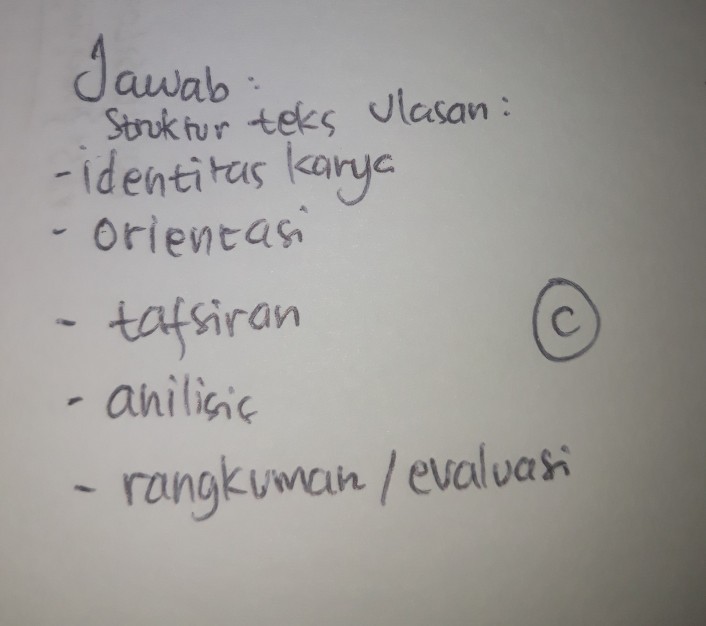 Jawab :
Struktur teks Ulasan :
- identitas karya
- orientasi
- tafsiran
C
- anilisis
- rangkuman / evaluasi